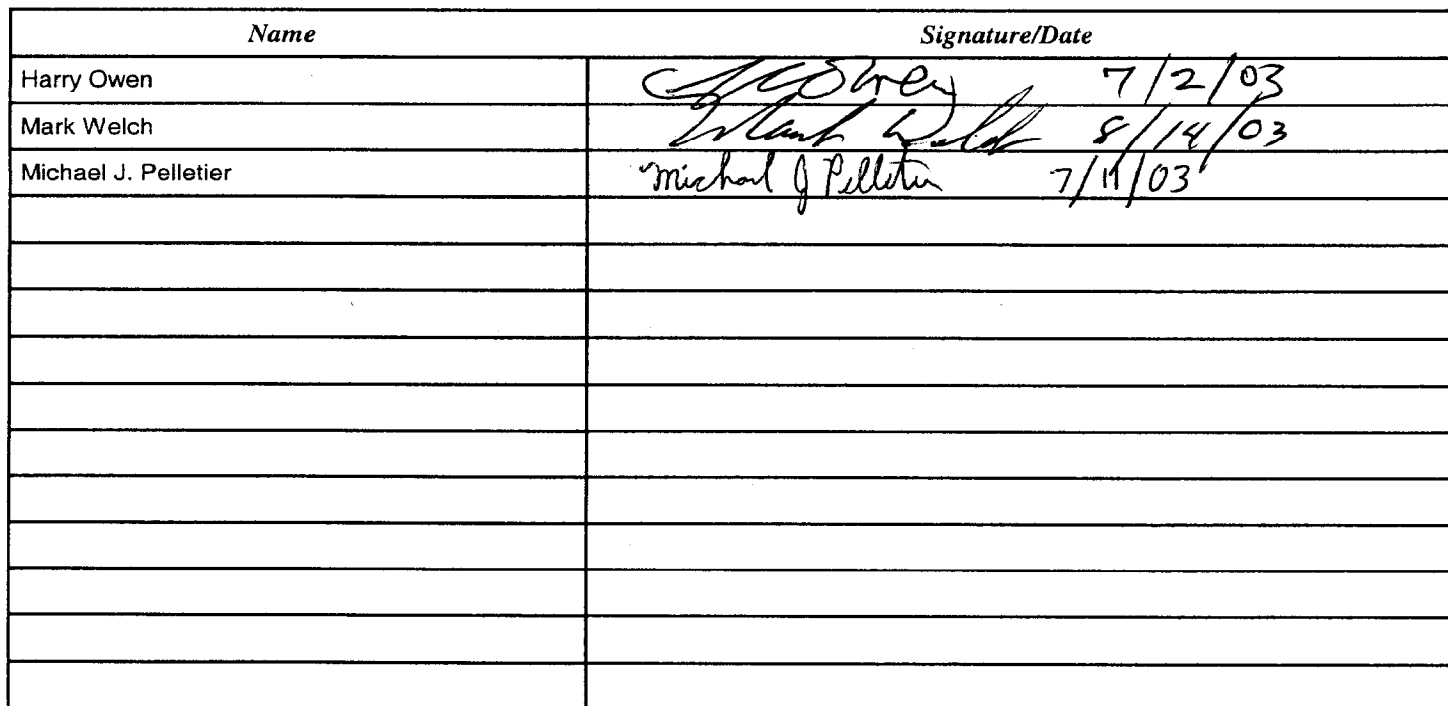 Name Signature/Date
Harry Owen 7/2/03
Mark Welch Mark Welch 8/14/03
Michael J. Pelletier Michael J Pelletier 7/11/03